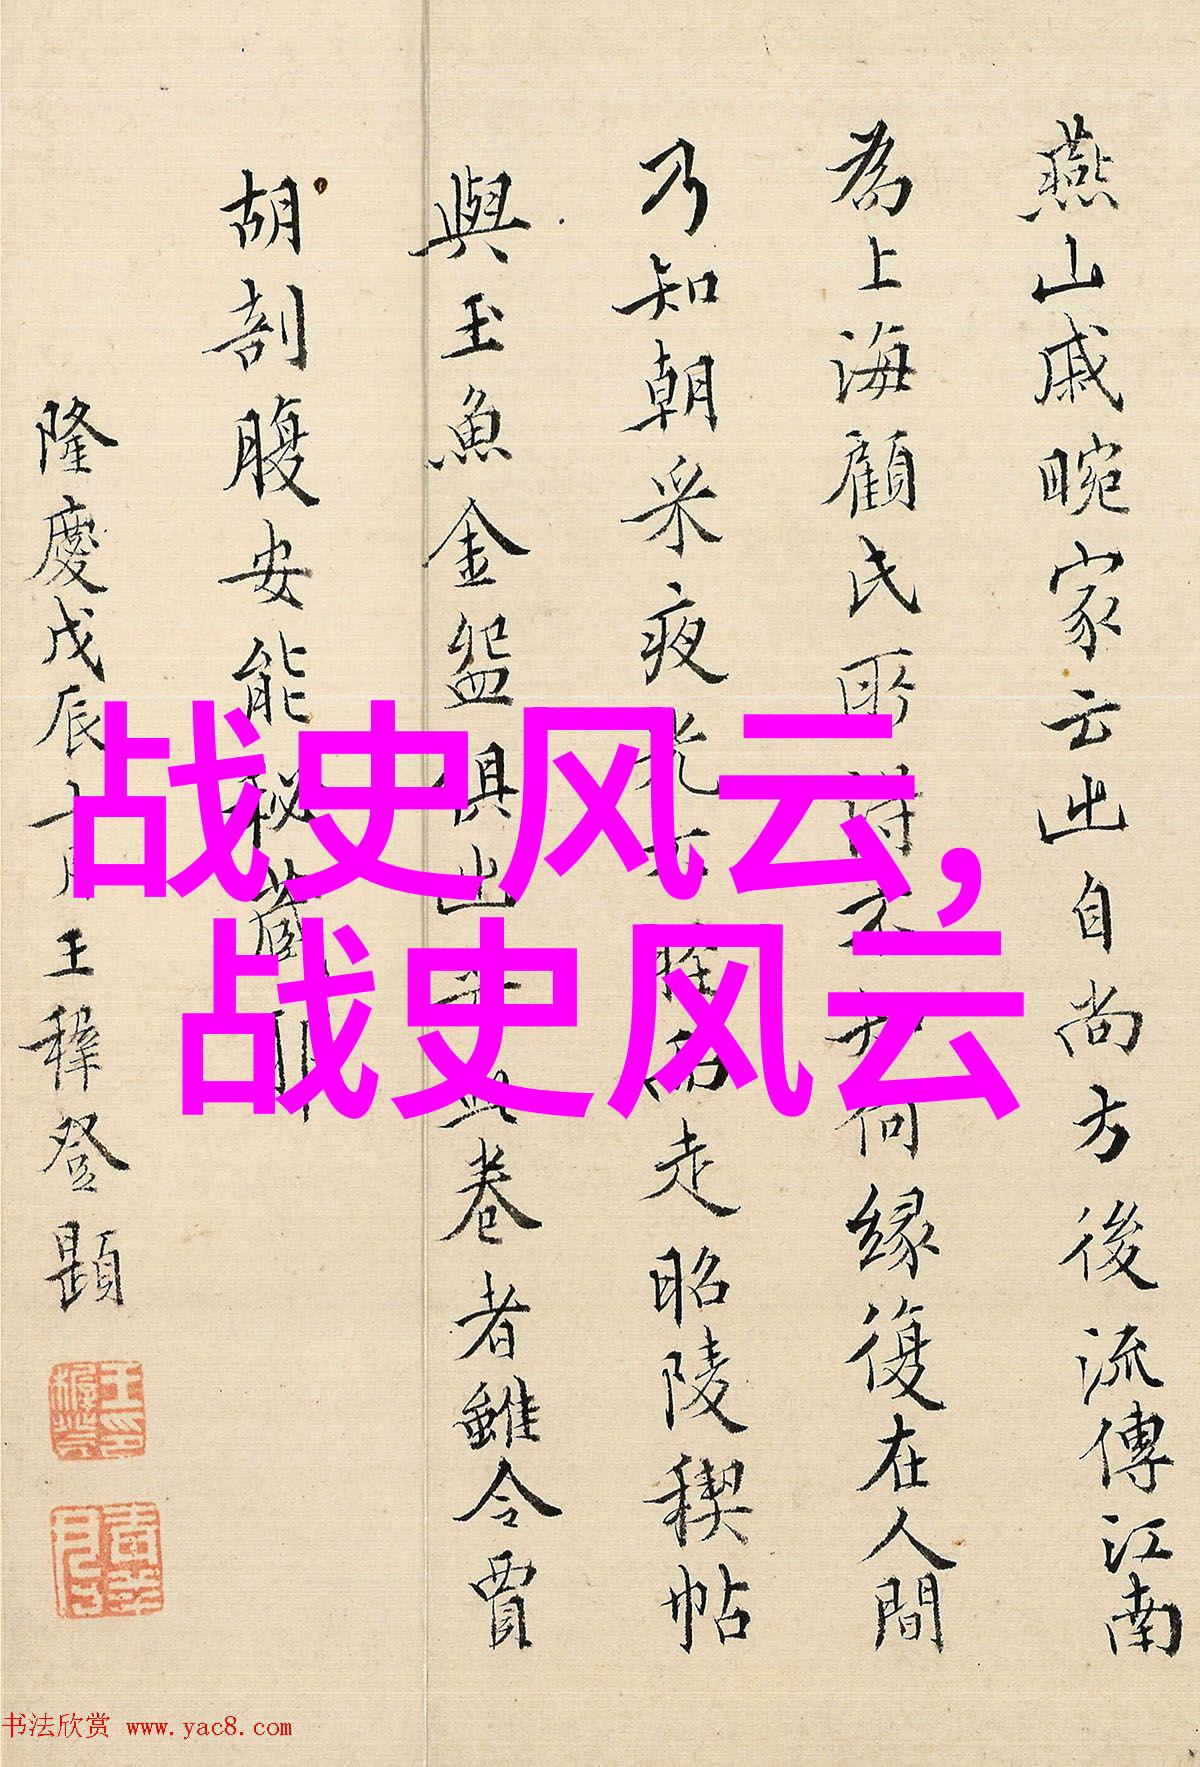 燕山戚畹家云出自尚方後流傳江南
為上海顧氏所得不知何緣復在人間
乃知朝采夜光不脛而走昭陵稧帖
與玉魚金盌俱出此卷者雖令賈
胡剖腹安能秘藏耶
隆慶戊辰七月王穉登題
战史风云,
战史风云
书法欣赏 www.yac8.com